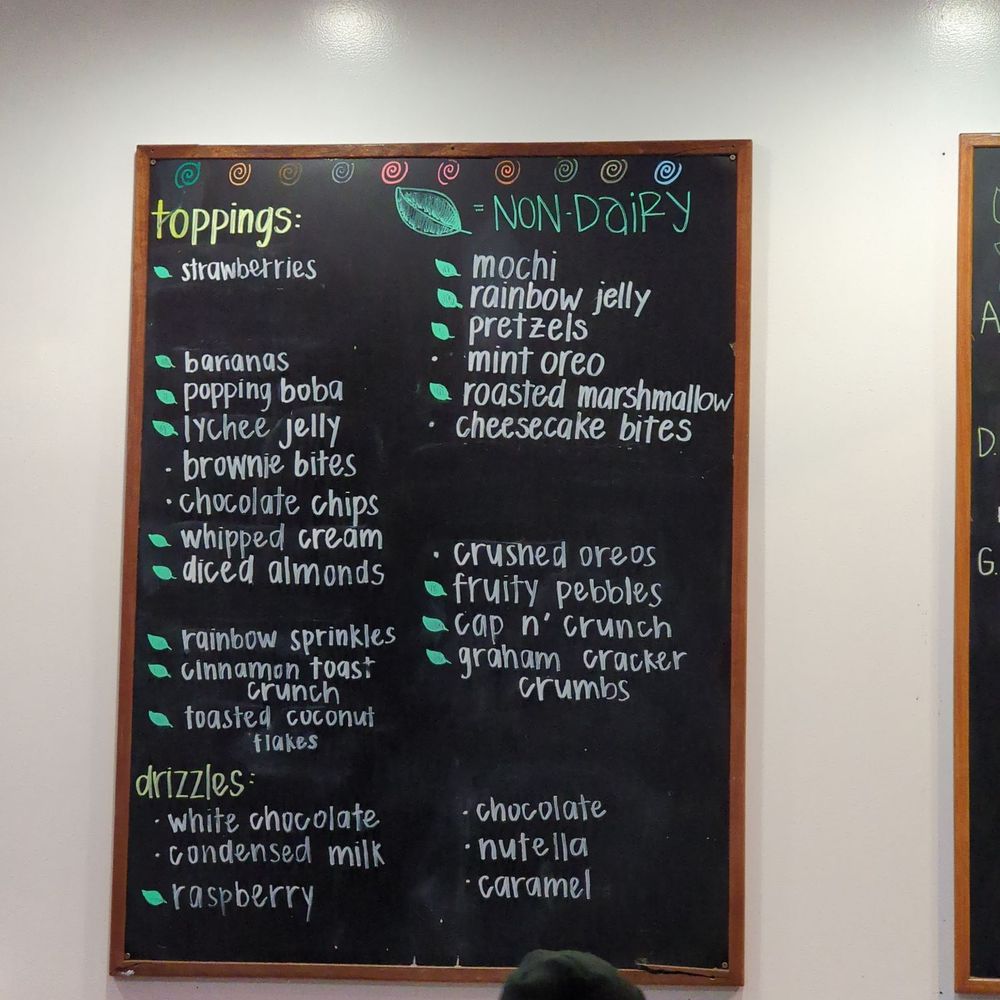 toppings:
= NON-DaiRY
strawberries
bananas
popping boba
lychee jelly
· brownie bites
· chocolate chips
whipped cream
diced almonds
rainbow sprinkles
cinnamon toast
crunch
toasted coconut
flakes
mochi
rainbow jelly
pretzels
· mint oreo
roasted marshmallow
· cheesecake bites
· crushed oreos
fruity pebbles
cap n' crunch
graham cracker
crumbs
drizzles:
· white chocolate
· condensed milk
raspberry
· chocolate
· nutella
· caramel
A
D.
G.